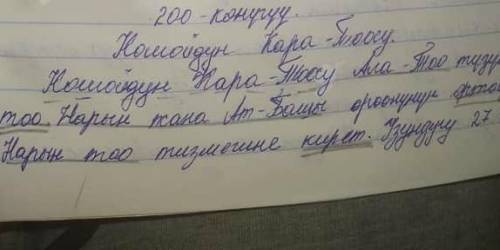 200-көнүгүү.
Кошойдун Кара-Тоосу.
Кошойдун Кара-Тоосу Ала-Тоо тизм
тоо. Нарын жана Ат-Башы өрөөнүнүн орто
Нарын тоо тизмегине кирет. Узундугу 27